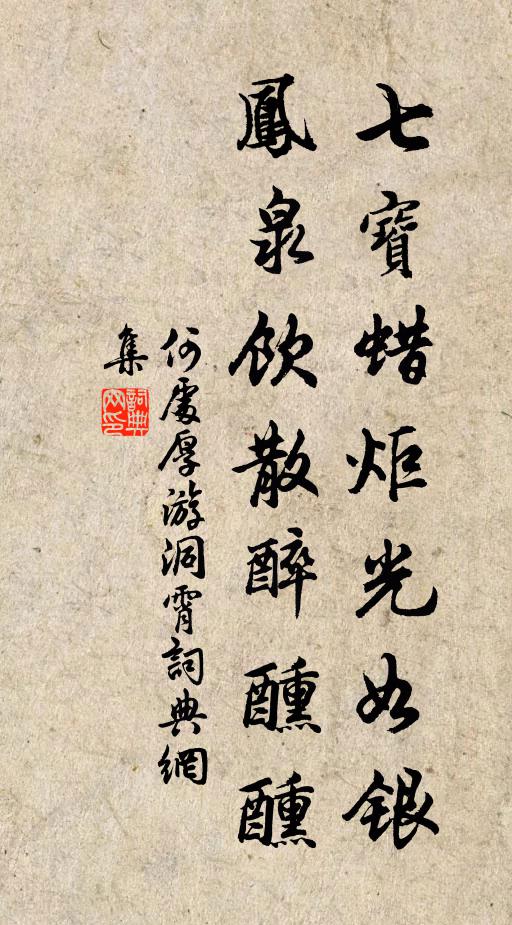 七寶蜡炬光如銀
鳳泉飲散醉醺醺
何處厚游洞霄詞典網
集
詞典網印